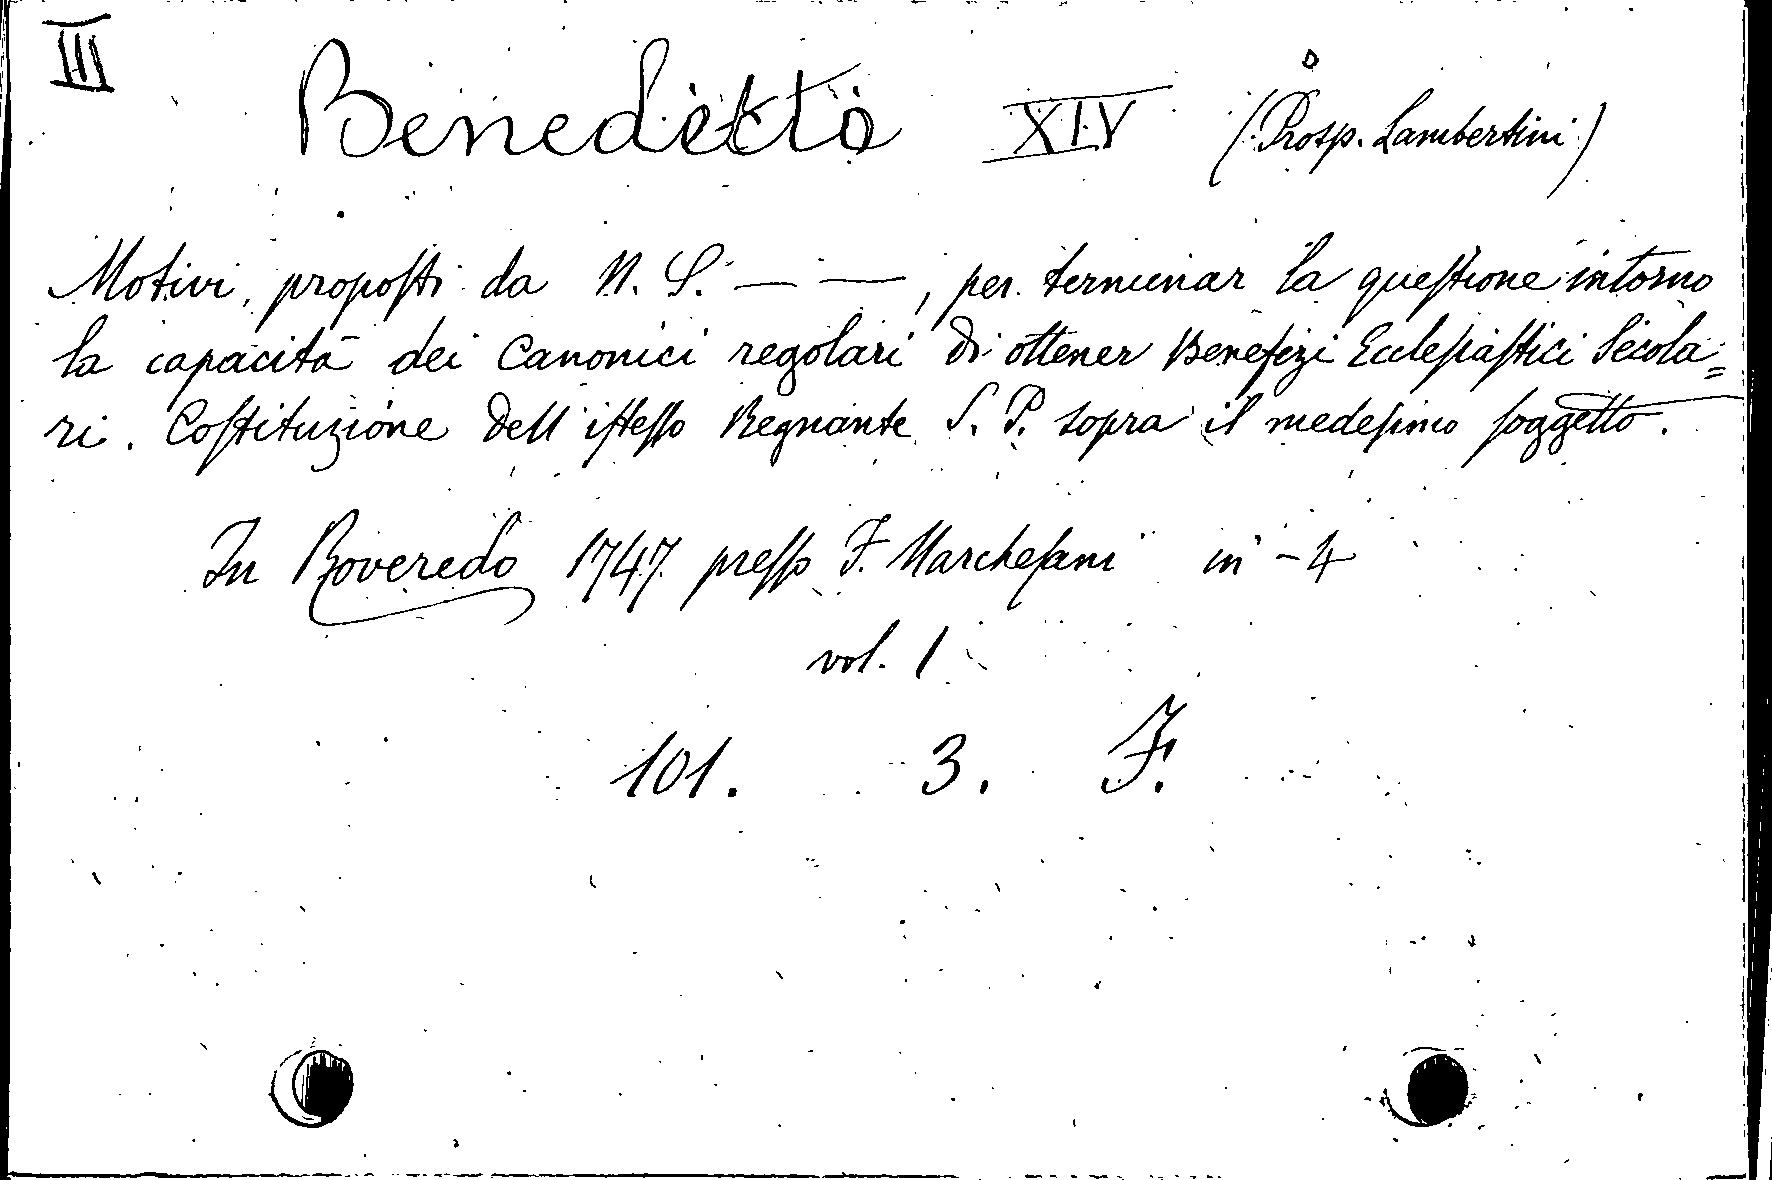 III
Benedetto XIV (Prosp. Lambertini)
Motivi, proposti da N. S. — —, per terminar la questione intorno
la capacità dei Canonici regolari di ottener Benefizi Ecclesiastici Secola=
ri. Costituzione dell'istesso Regnante S. P. sopra il medesimo soggetto.
In Roveredo 1747 presso F. Marchesani in-4
vol. 1
101. 3. F.